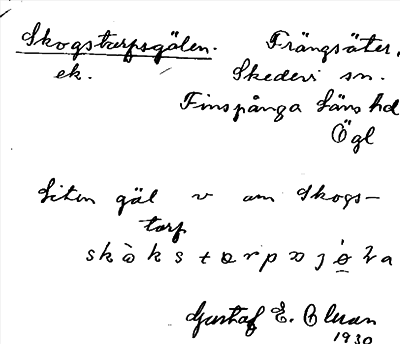 Skogstorpsgölen. Frängsäter,
ek. Skedevi sn.
Finspånga läns hd
Ögl
Liten göl v om Skogs-
torp
Gustaf E. Olsson
1930